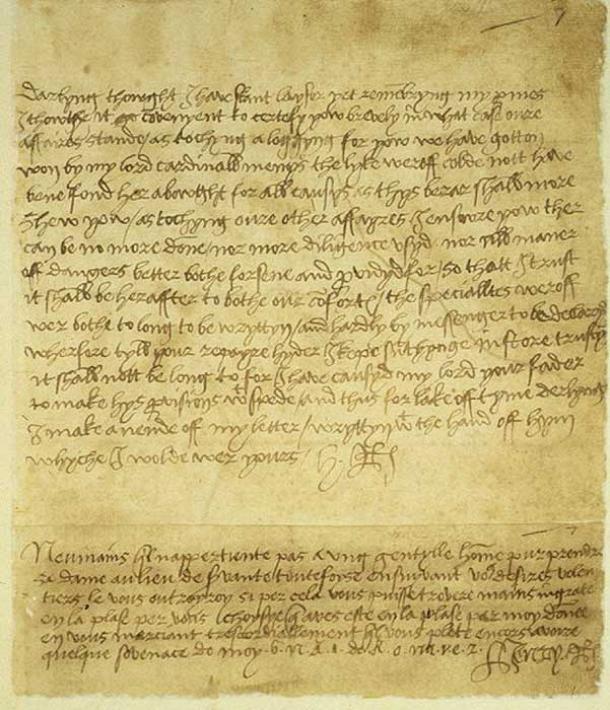 Darlyng thowght I have skant laysor yet remēbryng my pmes
I thowthe it covenyent to certefy yow brevely in what case oure
affaires stande / as tochyng a loggyng for yow we have gotton
won by my lord cardinalls menys the lyke weroff colde nott have
bene fond her abowght for all causys as thys berar shall more
shew yow / as tochyng oure other affayres I ensure yow ther
can be no more done / nor more diligence usyd nor all maner
off dangers better bothe forsene and pvydyd for / so thatt I trust
it shalbe heraffter to bothe our cōforte / the specialltes weroff
wer bothe to long to be wryttyn / and hardly by messenger to be declaryd
wherfore tyll your repayre hyder I kepe sūthynge in store trustyng
it shall nott be long to for I have causyd my lord your fader
to make hys pvisions wt spede / and thus for lake off tyme derlyng
I make anende off my letter / wryttyn wt the hand off hym
whyche I wolde wer yours H. R
Neumains il nappertiente pas a ung gentylle hōme pur prendre
sa dame au lieu de svante toutefoise ensuivant vo desires volen
tiers le vous outroyroy si per cela vous puisse trevere mains ingrate
en la plase per vous choysye q aves este en la plase par moy donne
en vous merciant trescordiallement qil vous plete encors avoire
quelque sovenace de moy. 6. n. A. 1. de A. o. na. ve. z. Henry R